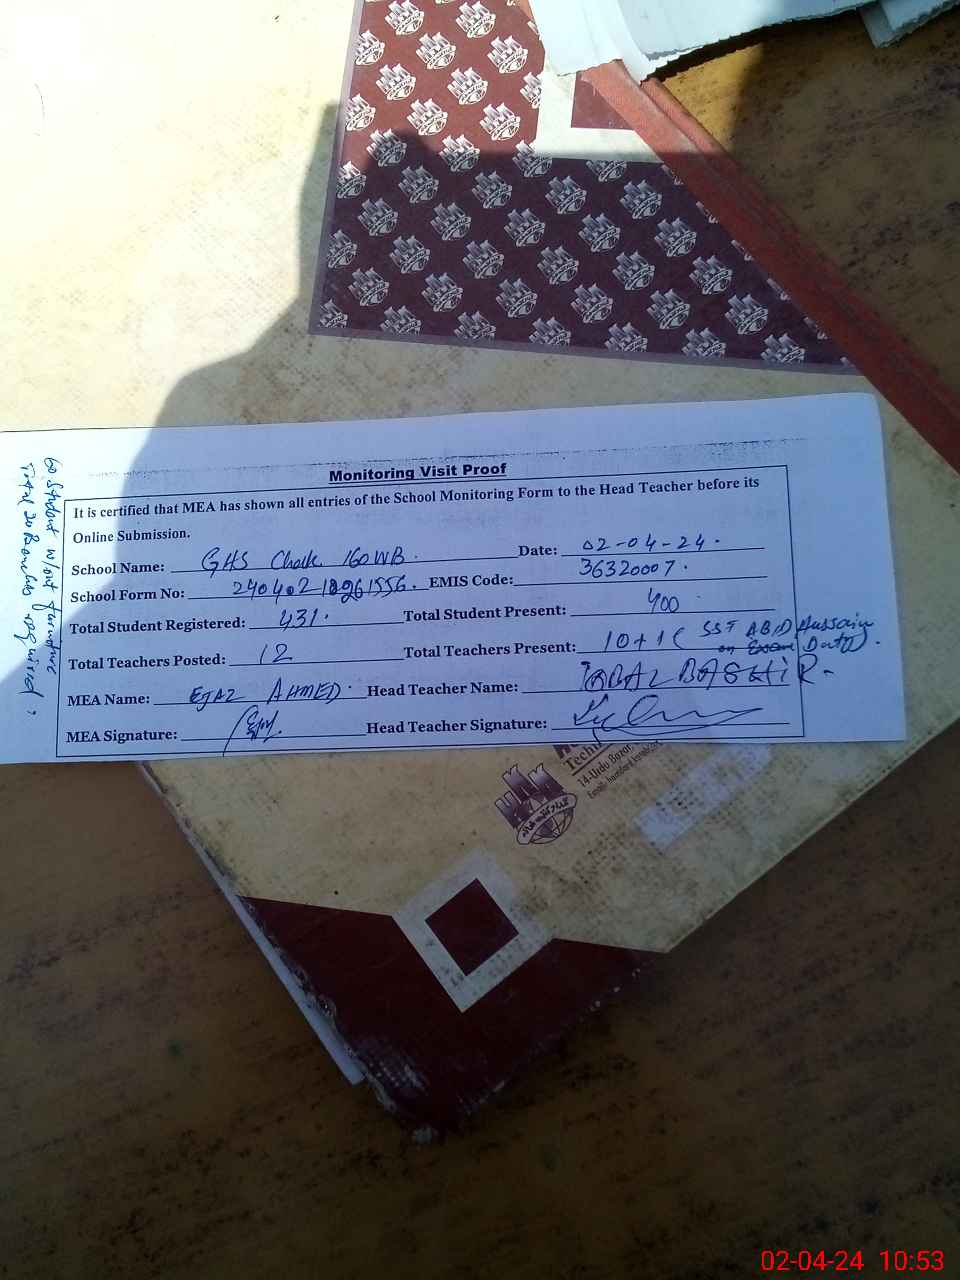 Monitoring Visit Proof
It is certified that MEA has shown all entries of the School Monitoring Form to the Head Teacher before its
Online Submission.
School Name: GHS Chak 160WB. Date: 02-04-24.
School Form No: EMIS Code: 36320007.
Total Student Registered: 431. Total Student Present: 400
Total Teachers Posted: 12 Total Teachers Present: 10+1 SST ABID Hussain
on Exam Duty.
MEA Name: EJAZ AHMED. Head Teacher Name: IQBAL BASHIR.
MEA Signature: Head Teacher Signature:
60 Student w/out furniture
Total 20 Benches required.
14-Urdu Bazar,
02-04-24 10:53